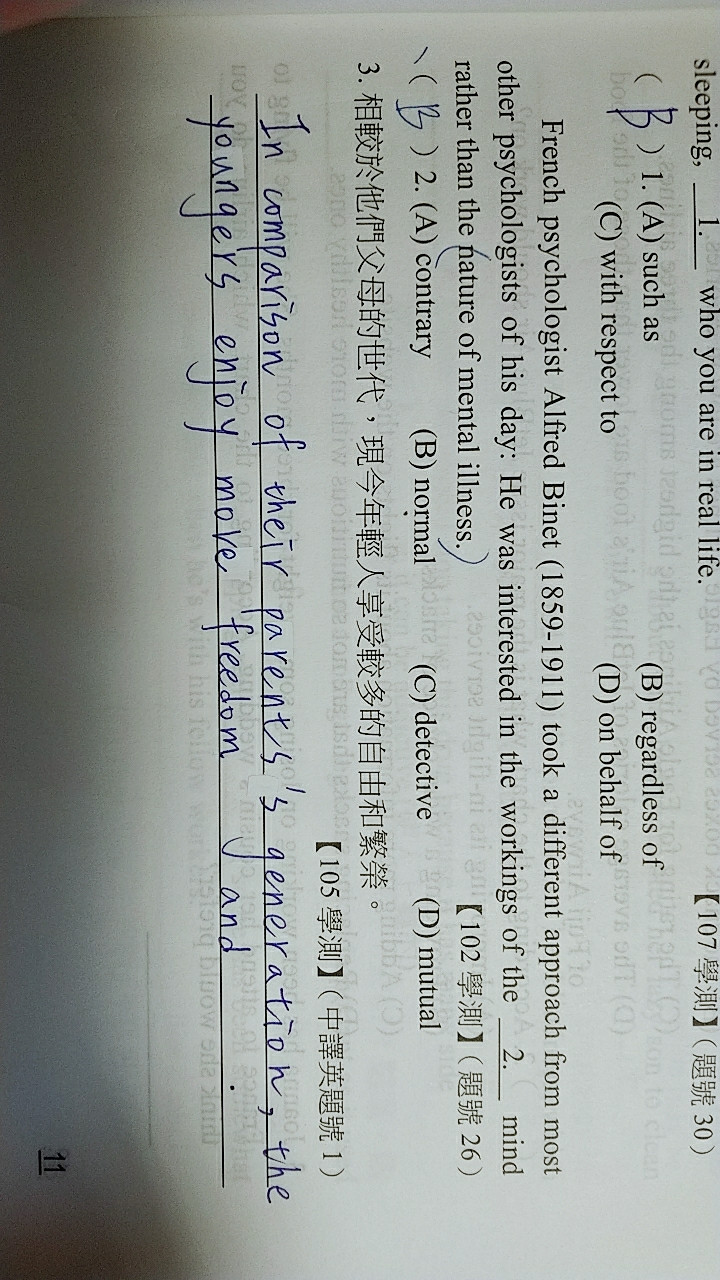 sleeping, 1. who you are in real life. 【107 學測】（題號 30）
( B ) 1. (A) such as (B) regardless of
(C) with respect to (D) on behalf of
French psychologist Alfred Binet (1859-1911) took a different approach from most
other psychologists of his day: He was interested in the workings of the 2. mind
rather than the nature of mental illness. 【102 學測】（題號 26）
( B ) 2. (A) contrary (B) normal (C) detective (D) mutual
3. 相較於他們父母的世代，現今年輕人享受較多的自由和繁榮。
【105 學測】（中譯英題號 1）
In comparison of their parents's generation, the
youngers enjoy more freedom and
11